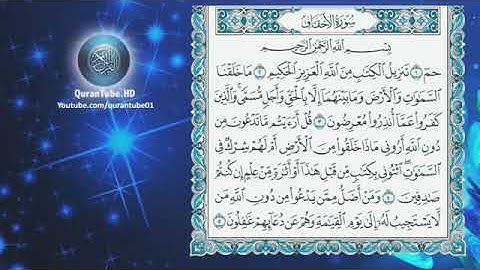 QuranTube.HD
Youtube.com/qurantube01
سورة الأحقاف
بسم الله الرحمن الرحيم
حم ١ تنزيل الكتب من الله العزيز الحكيم ٢ ما خلقنا
السموت والأرض وما بينهما إلا بالحق وأجل مسمى والذين
كفروا عما أنذروا معرضون ٣ قل أرءيتم ما تدعون من
دون الله أروني ماذا خلقوا من الأرض أم لهم شرك في
السموت ائتوني بكتب من قبل هذا أو أثرة من علم إن كنتم
صدقين ٤ ومن أضل ممن يدعوا من دون الله من
لا يستجيب له إلى يوم القيمة وهم عن دعائهم غفلون ٥